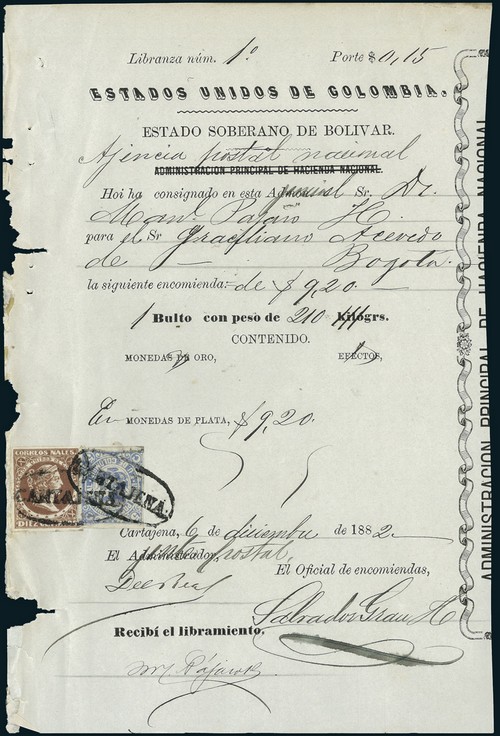 Libranza núm. 1º Porte $0,15
ESTADOS UNIDOS DE COLOMBIA.
ESTADO SOBERANO DE BOLIVAR.
Ajencia postal nacional
ADMINISTRACION PRINCIPAL DE HACIENDA NACIONAL.
Hoi ha consignado en esta Sr. Dr.
Manl. Pájaro H.
para el Sr Graciliano Acevedo
de — Bogotá.
la siguiente encomienda:— de $ 9,20.—
1 Bulto con peso de 210 Kilógrs.
CONTENIDO.
MONEDAS DE ORO, EFECTOS,
En MONEDAS DE PLATA, $ 9,20.
CORREOS NALES
CARTAJENA.
Cartajena, 6 de diciembre de 1882.
El Administrador, postal,
El Oficial de encomiendas,
Salvador Grau H
Recibí el libramiento.
ADMINISTRACION PRINCIPAL DE HACIENDA NACIONAL